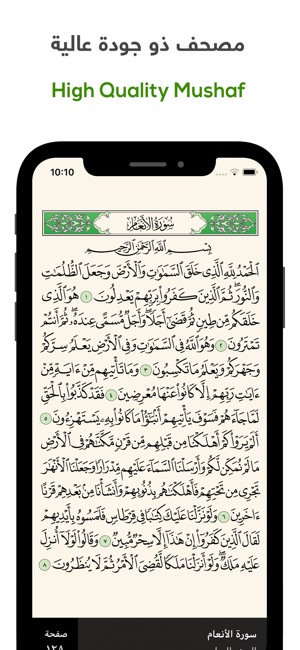 مصحف ذو جودة عالية
High Quality Mushaf
10:10
سُورَةُ الأَنْعَامِ
بِسْمِ اللَّهِ الرَّحْمَٰنِ الرَّحِيمِ
الْحَمْدُ لِلَّهِ الَّذِي خَلَقَ السَّمَاوَاتِ وَالْأَرْضَ وَجَعَلَ الظُّلُمَاتِ
وَالنُّورَ ثُمَّ الَّذِينَ كَفَرُوا بِرَبِّهِمْ يَعْدِلُونَ ١ هُوَ الَّذِي
خَلَقَكُمْ مِنْ طِينٍ ثُمَّ قَضَىٰ أَجَلًا وَأَجَلٌ مُسَمًّى عِنْدَهُ ثُمَّ أَنْتُمْ
تَمْتَرُونَ ٢ وَهُوَ اللَّهُ فِي السَّمَاوَاتِ وَفِي الْأَرْضِ يَعْلَمُ سِرَّكُمْ
وَجَهْرَكُمْ وَيَعْلَمُ مَا تَكْسِبُونَ ٣ وَمَا تَأْتِيهِمْ مِنْ ءَايَةٍ مِنْ
ءَايَاتِ رَبِّهِمْ إِلَّا كَانُوا عَنْهَا مُعْرِضِينَ ٤ فَقَدْ كَذَّبُوا بِالْحَقِّ
لَمَّا جَاءَهُمْ فَسَوْفَ يَأْتِيهِمْ أَنْبَاءُ مَا كَانُوا بِهِ يَسْتَهْزِءُونَ ٥
أَلَمْ يَرَوْا كَمْ أَهْلَكْنَا مِنْ قَبْلِهِمْ مِنْ قَرْنٍ مَكَّنَّاهُمْ فِي الْأَرْضِ
مَا لَمْ نُمَكِّنْ لَكُمْ وَأَرْسَلْنَا السَّمَاءَ عَلَيْهِمْ مِدْرَارًا وَجَعَلْنَا الْأَنْهَارَ
تَجْرِي مِنْ تَحْتِهِمْ فَأَهْلَكْنَاهُمْ بِذُنُوبِهِمْ وَأَنْشَأْنَا مِنْ بَعْدِهِمْ قَرْنًا
ءَاخَرِينَ ٦ وَلَوْ نَزَّلْنَا عَلَيْكَ كِتَابًا فِي قِرْطَاسٍ فَلَمَسُوهُ بِأَيْدِيهِمْ
لَقَالَ الَّذِينَ كَفَرُوا إِنْ هَٰذَا إِلَّا سِحْرٌ مُبِينٌ ٧ وَقَالُوا لَوْلَا أُنْزِلَ
عَلَيْهِ مَلَكٌ وَلَوْ أَنْزَلْنَا مَلَكًا لَقُضِيَ الْأَمْرُ ثُمَّ لَا يُنْظَرُونَ ٨
سورة الأنعام صفحة
١٢٨